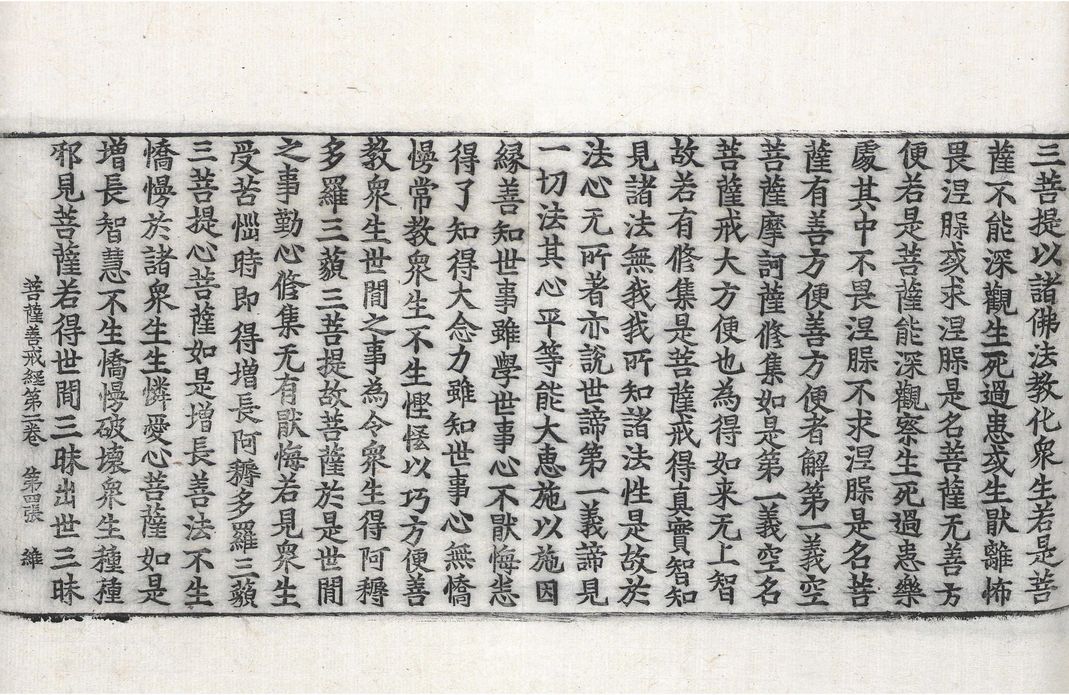 三菩提以諸佛法教化衆生若是菩
薩不能深觀生死過患或生猒離怖
畏涅槃或求涅槃是名菩薩无善方
便若是菩薩能深觀察生死過患樂
處其中不畏涅槃不求涅槃是名菩
薩有善方便善方便者解第一義空
菩薩摩訶薩修集如是第一義空名
菩薩戒大方便也為得如来无上智
故若有修集是菩薩戒得真實智知
見諸法無我我所知諸法性是故於
法心无所著亦說世諦第一義諦見
一切法其心平等能大惠施以施因
縁善知世事雖學世事心不猒悔恙
得了知得大念力雖知世事心無憍
慢常教衆生不生慳悋以巧方便善
教衆生世間之事為令衆生得阿耨
多羅三藐三菩提故菩薩於是世間
之事勤心修集无有猒悔若見衆生
受苦惱時即得增長阿耨多羅三藐
三菩提心菩薩如是增長善法不生
憍慢於諸衆生生憐愛心菩薩如是
增長智慧不生憍慢破壞衆生種種
邪見菩薩若得世間三昧出世三昧
菩薩善戒経第二卷 第四張 維